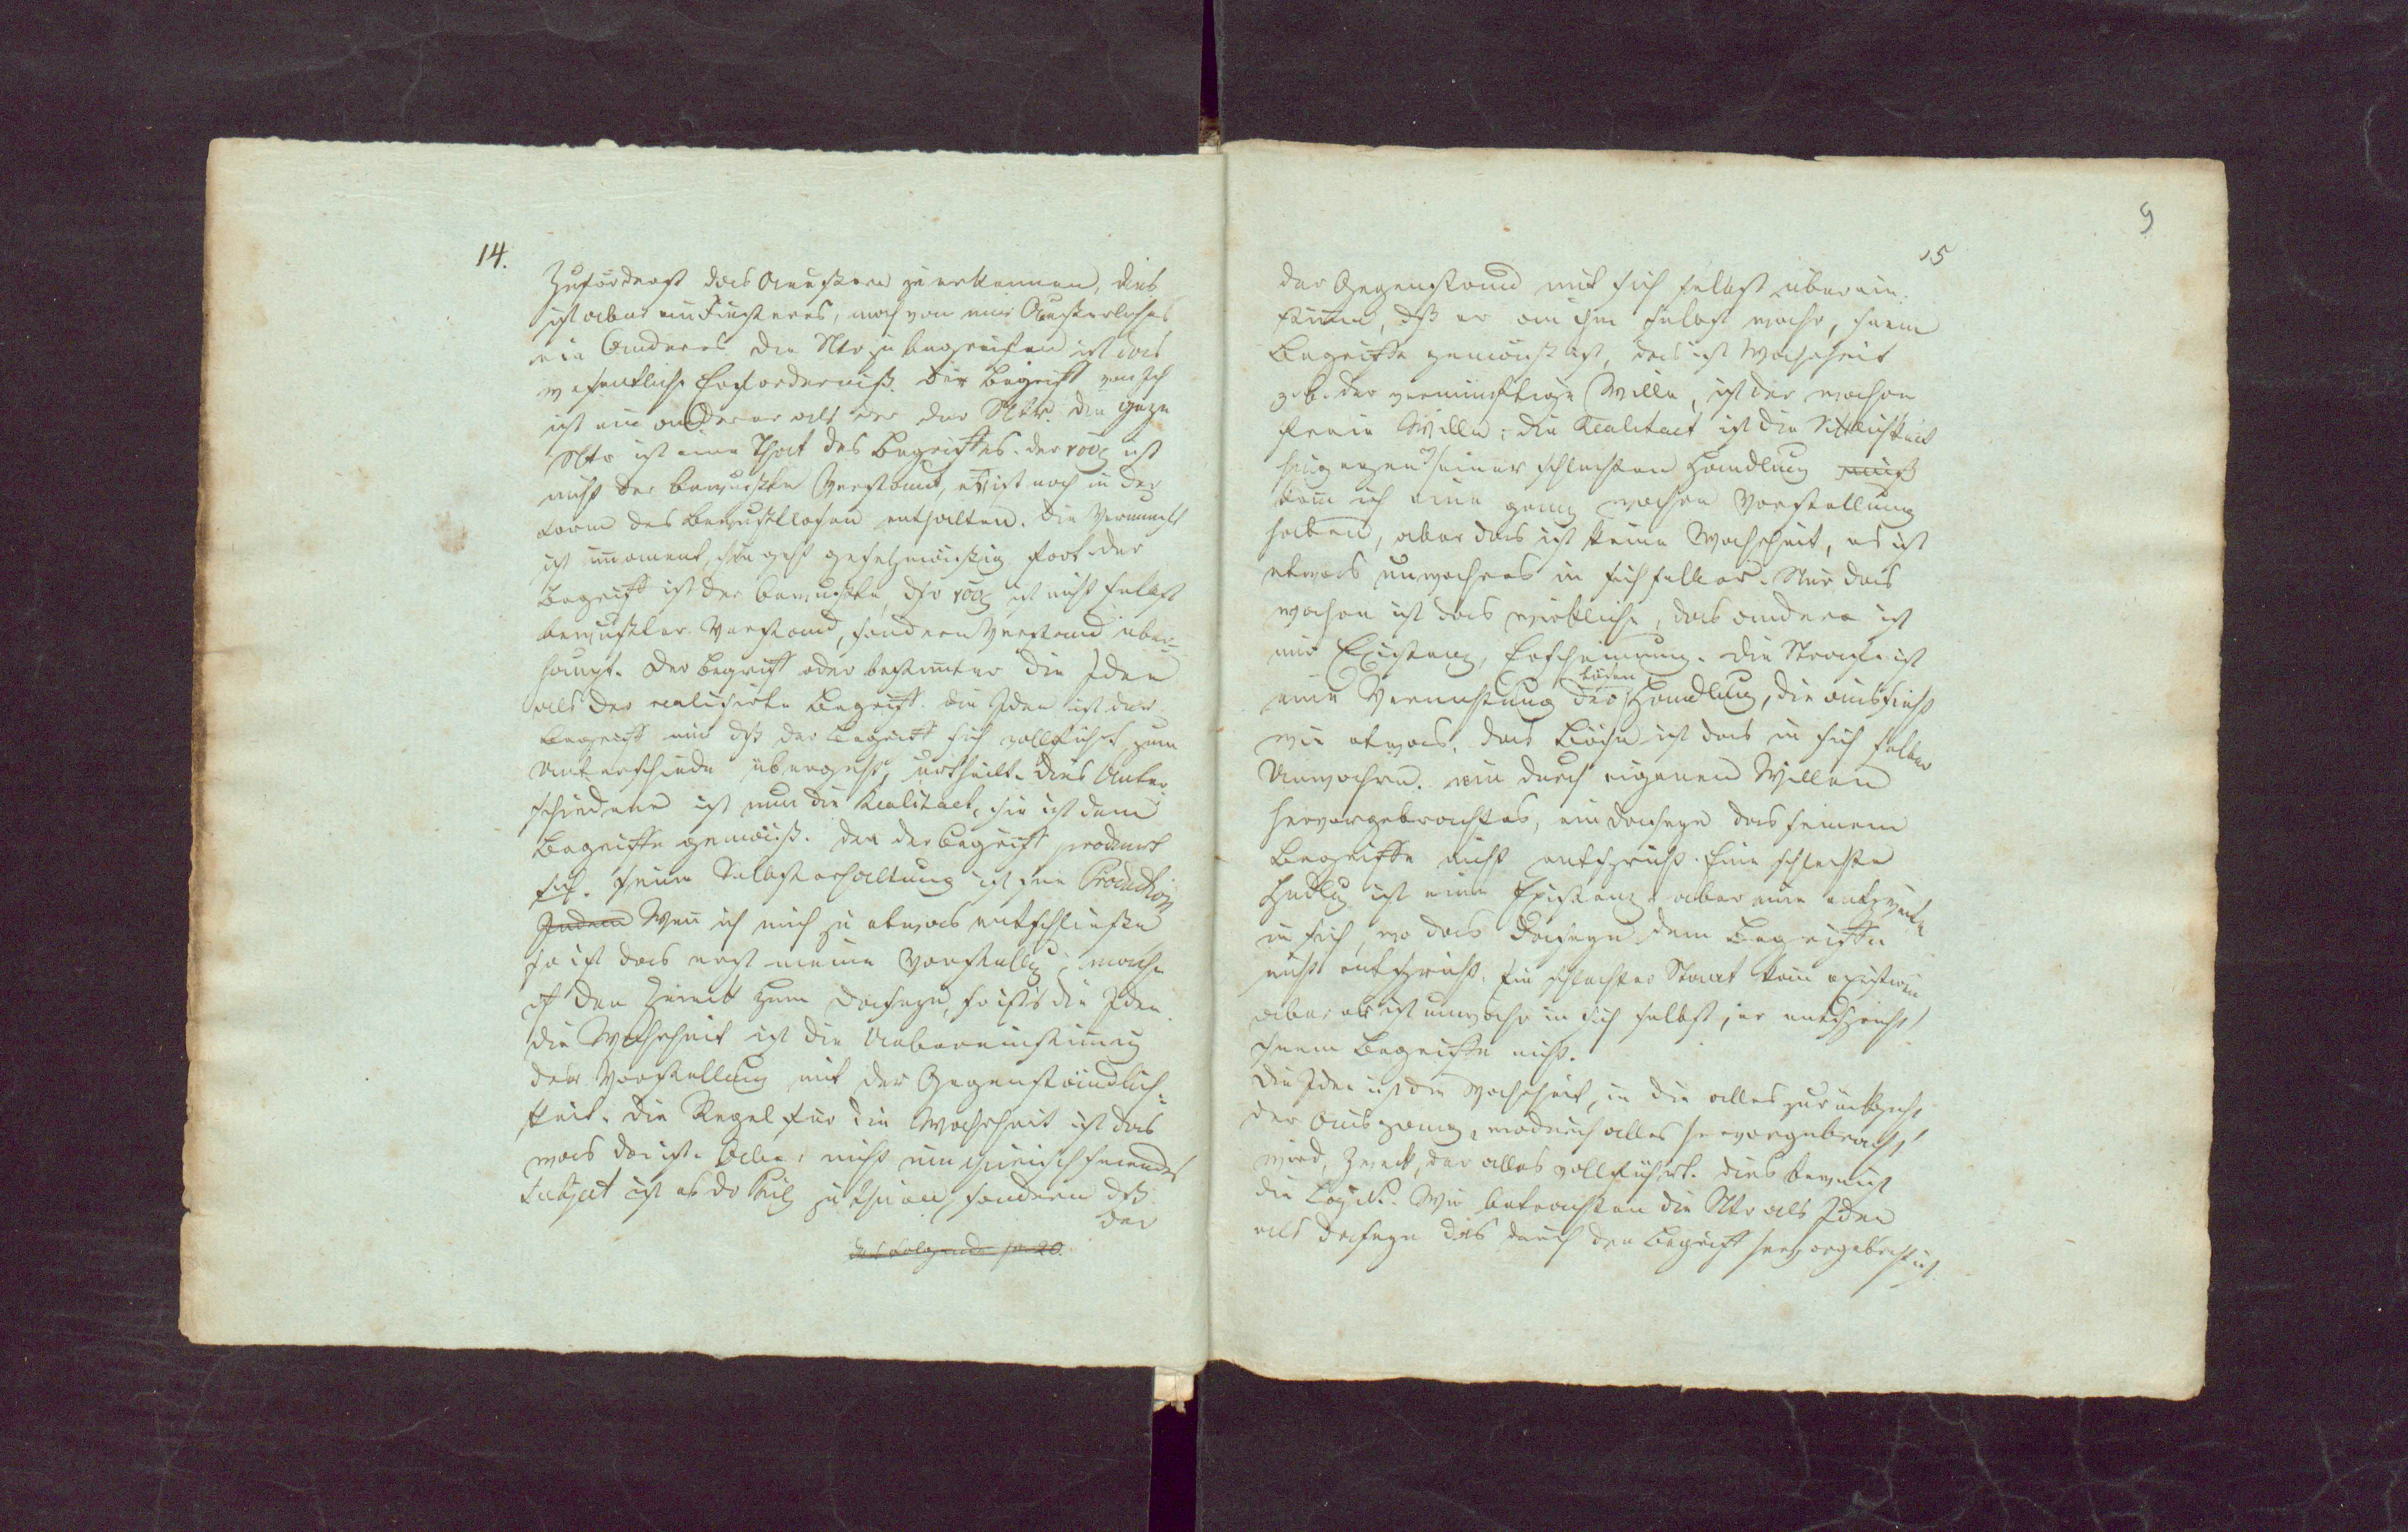 14.
Zuförderst das Aeußere zu erkennen, dies
ist aber ein Finsteres, noch von mir Aeußerliches
ein Anderes. Die Ntr zu begreifen ist das
wesentliche Erforderniß. Der Begriff von Ich
ist ein anderer als der der Ntr. Die ganze
Ntr ist eine That des Begriffes. Der νους ist
nicht der bewußte Verstand, er ist noch in der
Form des Bewußtlosen enthalten. Die Vernunft
ist immanent, sie geht gesetzmäßig fort. Der
Begriff ist der bewußte, der νους ist nicht selbst
bewußter Verstand, sondern Verstand über-
haupt. Der Begriff oder bestimmter die Idee
als der realisirte Begriff. Die Idee ist der
Begriff nur dß der Begriff sich vollführt, zum
Unterschiede übergeht, urtheilt. Dies Unter-
schiedene ist nun die Realitaet, sie ist dem
Begriffe gemäß. Den der Begriff producirt
sich. Seine Selbsterhaltung ist seine Production
Indem Wenn ich mich zu etwas entschließe
so ist das erst meine Vorstellg; mache
ich den Zweck zum Daseyn, so ists die Idee.
Die Wahrheit ist die Uebereinstimmung
der Vorstellung mit der Gegenständlich-
keit. Die Regel für die Wahrheit ist das
was da ist. Aber nicht um
Subject ist es der zu thuen, sondern dß
der
das Folgende p. 20.
9
15
der Gegenstand mit sich selbst überein-
stimme, dß er an ihm selbst wahr, seinem
Begriffe gemäß ist, das ist Wahrheit
z.b. der vernünftige Wille, ist der wahre
freie Wille; die Realitaet ist die Sittlichkeit
hingegen seiner schlechten Handlung muß
kann ich eine ganz wahre Vorstellung
haben, aber das ist keine Wahrheit, es ist
etwas unwahres in sich selber. Nur das
wahre ist das wirkliche, das andere ist
nur Existenz, Erscheinung. Die Strafe ist
bösen
eine Vernichtung der Handlung, die aussieht
wie etwas. Das Böse ist das in sich selber
Unwahre. ein durch eigenen Willen
hervorgebrachtes, ein Daseyn das seinem
Begriffe nicht entspricht. Eine schlechte
Hndlg ist eine Existenz, aber eine entzweite
in sich, wo das Daseyn dem Begriffe
nicht entspricht. Ein schlechter Staat kann existiren
aber er ist unwahr in sich selbst, er entspricht
seinem Begriffe nicht.
Die Idee ist die Wahrheit, in die alles zurückgeht
der Ausgang, wodurch alles hervorgebracht
wird, Zweck, der alles vollführt. Dies beweist
die Logik. Wir betrachten die Ntr als Idee
als Daseyn das durch den Begriff hervorgebracht ist.